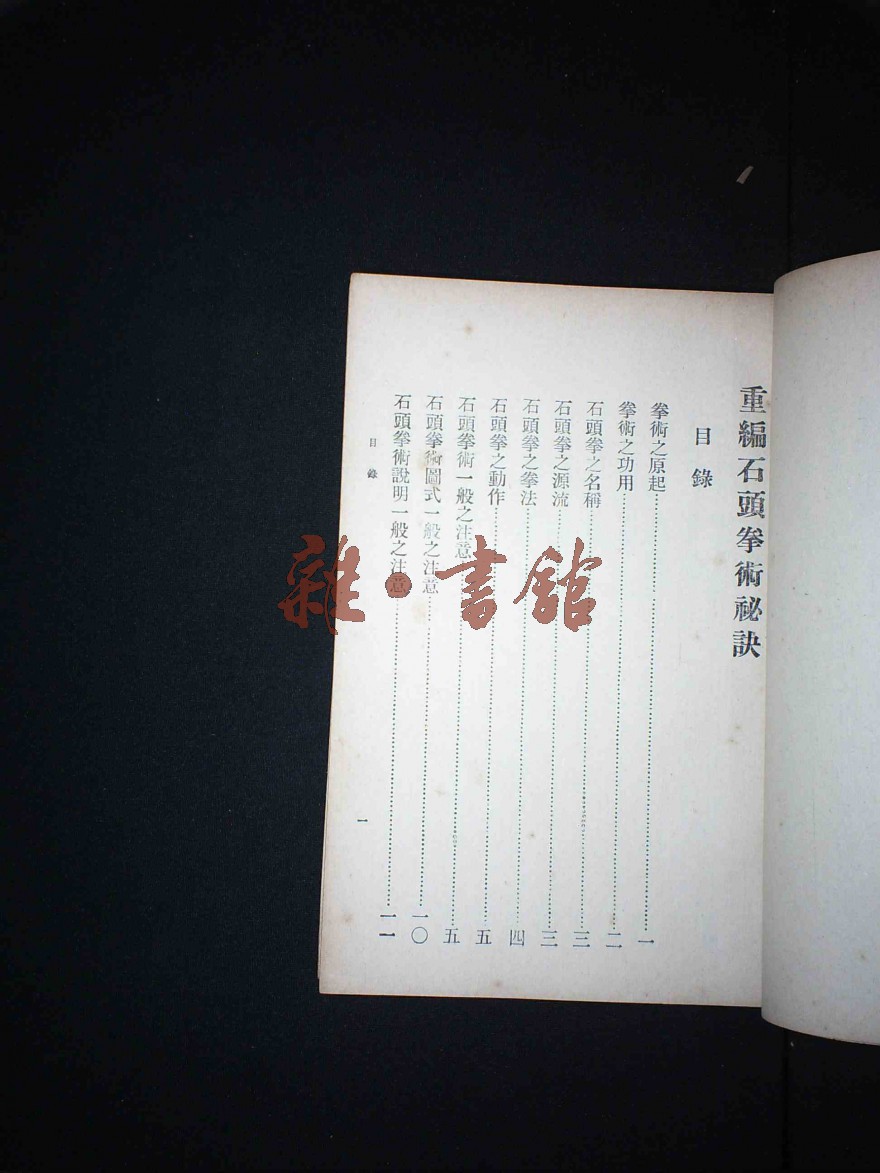 重編石頭拳術祕訣
目錄
拳術之原起……一
拳術之功用……二
石頭拳之名稱……三
石頭拳之源流……三
石頭拳之拳法……四
石頭拳之動作……五
石頭拳術一般之注意……五
石頭拳術圖式一般之注意……一〇
石頭拳術說明一般之注意……一一
目錄
一
雜·書館